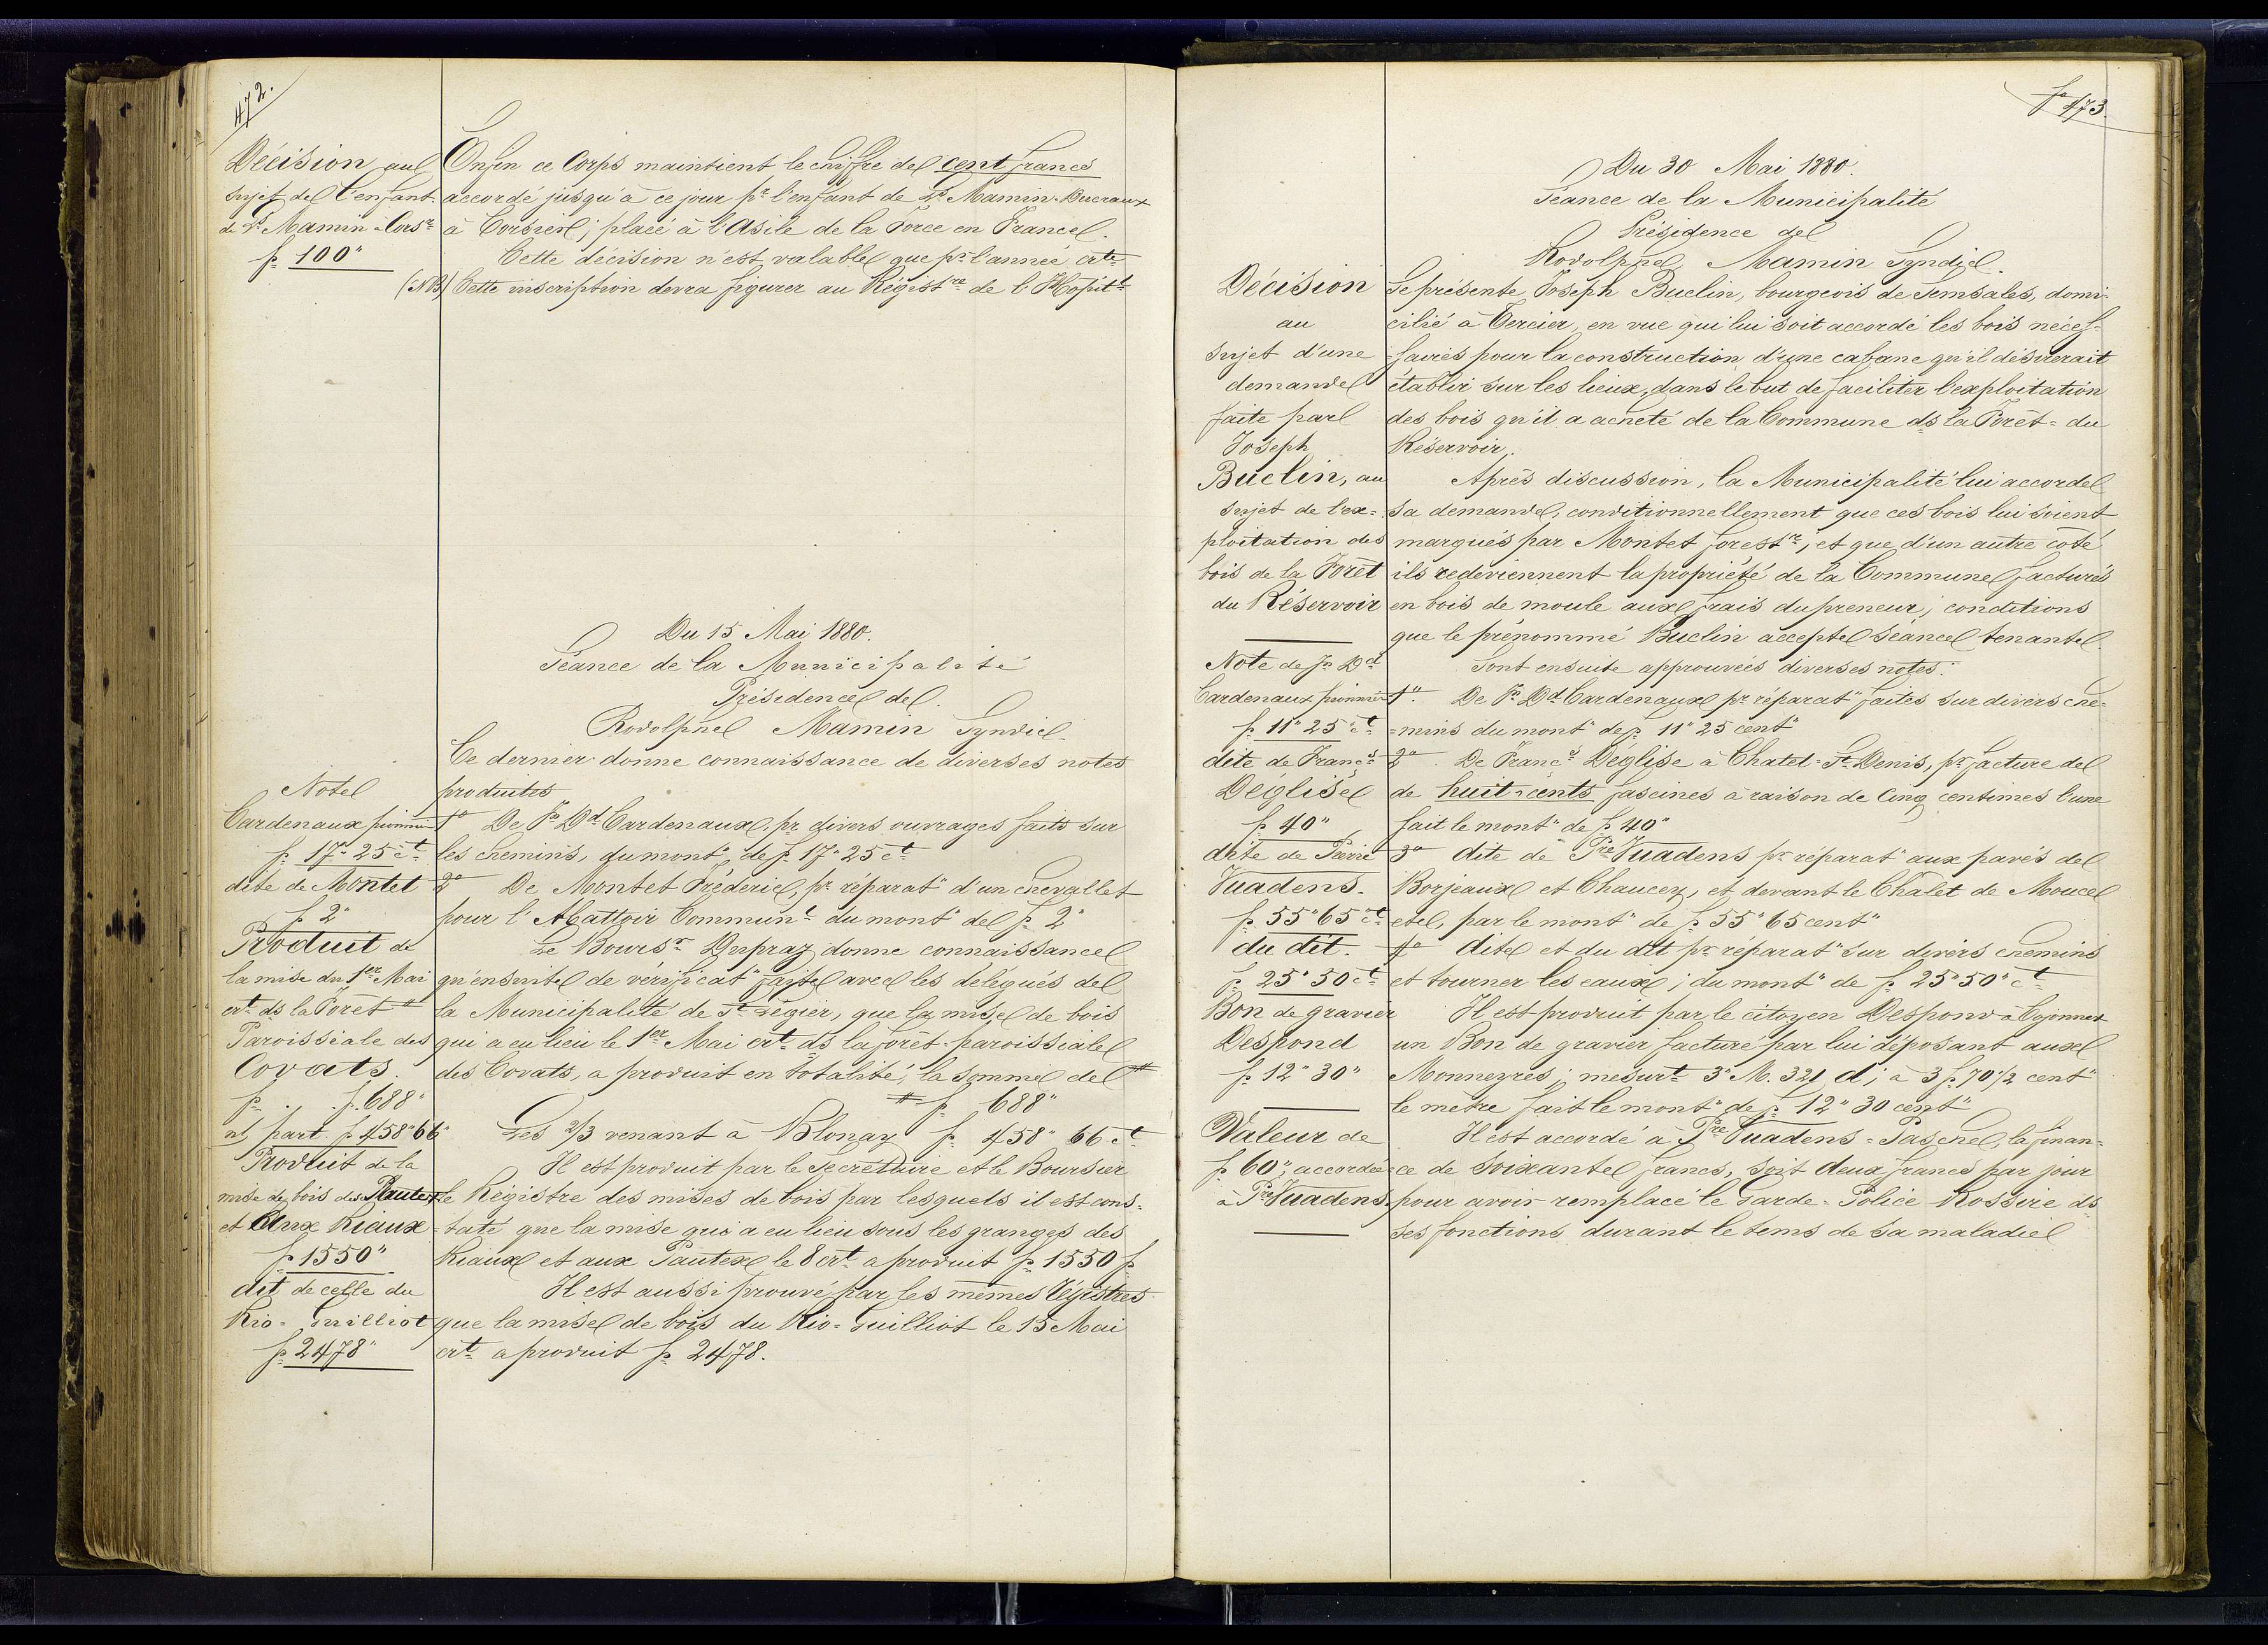 472.
Décision au
sujet de l'enfant
de Ls Mamin-Corsr
f. 100"
Enfin ce Corps maintient le chiffre de cent francs
accordé jusqu'à ce jour pr l'enfant de Ls Mamin-
à Corsier; placé à l'Asile de la Force en France.
Cette décision n'est valable que pr l'année crte
(NB) Cette inscription devra figurer au Régistre de l'Hopit.l
Du 15 Mai 1880.
Séance de la Municipalité
Présidence de
Rodolphe Mamin Syndic.
Ce dernier donne connaissance de diverses notes
Note
produites
Cardenaux pionnier
1o De Fs Dd Cardenaux, pr divers ouvrages faits sur
f. 17" 25 ct
les chemins, du mont" de f. 17" 25 ct
dite de Montet
2o De Montet Fréderic, pr réparat" d'un chevallet
f. 2"
pour l'Abattoir Communl du mont" de f. 2"
Produit de
Le Boursr Dupraz donne connaissance
la mise du 1er Mai
qu'ensuite de vérificat" faite avec les délégués de
crt ds la Forêt
la Municipalité de St Légier, que la mise de bois
Paroissiale des
qui a eu lieu le 1er Mai crt ds la forêt paroissiale
Covats.
des Covats, a produit en totalité, la somme de #
f. 688"
# f. 688"
nt part. f. 458" 66"
Les 2/3 venant à Blonay f. 458" 66 ct
Produit de la
Il est produit par le Secrétaire et le Boursier
mise de bois des Pautex
le Régistre des mises de bois par lesquels il est cons-
et Aux Riaux
taté que la mise qui a eu lieu sous les granges des
f. 1550"
Riaux et aux Pautex le 8 crt a produit f. 1550 f.
dit de celle du
Il est aussi prouvé par les mêmes Régistres
Rio-Guilliot
que la mise de bois du Rio-Guilliot le 15 Mai
f. 2478"
crt a produit f. 2478.
fo 473.
Du 30 Mai 1880.
Séance de la Municipalité
Présidence de
Rodolphe Mamin Syndic.
Décision
Se présente Joseph Buclin, bourgeois de Semsales, domi-
au
cilié à Cercier, en vue qui lui soit accordé les bois néces-
sujet d'une
=saires pour la construction d'une cabane qu'il désirerait
demande
établir sur les lieux, dans le but de faciliter l'exploitation
faite par
des bois qu'il a acheté de la Commune ds la Forêt= du
Joseph
Réservoir.
Buclin, au
Après discussion, la Municipalité lui accorde
sujet de l'ex=
sa demande, conditionnellement que ces bois lui soient
ploitation des
marqués par Montet forestr, et que d'un autre coté
bois de la Forêt
ils redeviennent la propriété de la Commune facturés
du Réservoir
en bois de moule aux frais du preneur; conditions
que le prénommé Buclin accepte séance tenante.
Note de Fs Dd
Sont ensuite approuvées diverses notes:
Cardenaux pionnier
1o. De Fs Dd Cardenaux pr réparat" faites sur divers che-
f. 11" 25 ct
=mins du mont" de f. 11" 25 cent"
dite de Francs
2o. De Francs Déglise à Chatel=St Denis, pr facture de
Déglise
de huit-cents fascines à raison de Cinq centimes l'une
f. 40"
fait le mont" de f. 40"
dite de Pierre
3o dite de Pre Vuadens pr réparat" aux pavés de
Vuadens.
Borjeaux et Chaucey, et devant le Chalet de Mouce
f. 55" 65 ct
etc, par le mont" de f. 55" 65 cent"
du dit.
4o dite et du dit pr réparat" sur divers chemins
f. 25" 50 ct
et tourner les eaux; du mont" de f. 25" 50" ct
Bon de gravier
Il est produit par le citoyen Despond à Cojonnex
Despond
un Bon de gravier facturé par lui déposant aux
f. 12" 30"
Monneyres; mesurt 3" M. 321 d; à 3 f. 70 1/2 cent"
le mètre fait le mont" de f. 12" 30 cent"
Valeur de
Il est accordé à Pre Vuadens=Paschel, la finan=
f. 60", accordée
=ce de soixante francs, soit deux francs par jour
à Pre Vuadens,
pour avoir remplacé le Garde=Police Rossire ds
ses fonctions durant le tems de sa maladie